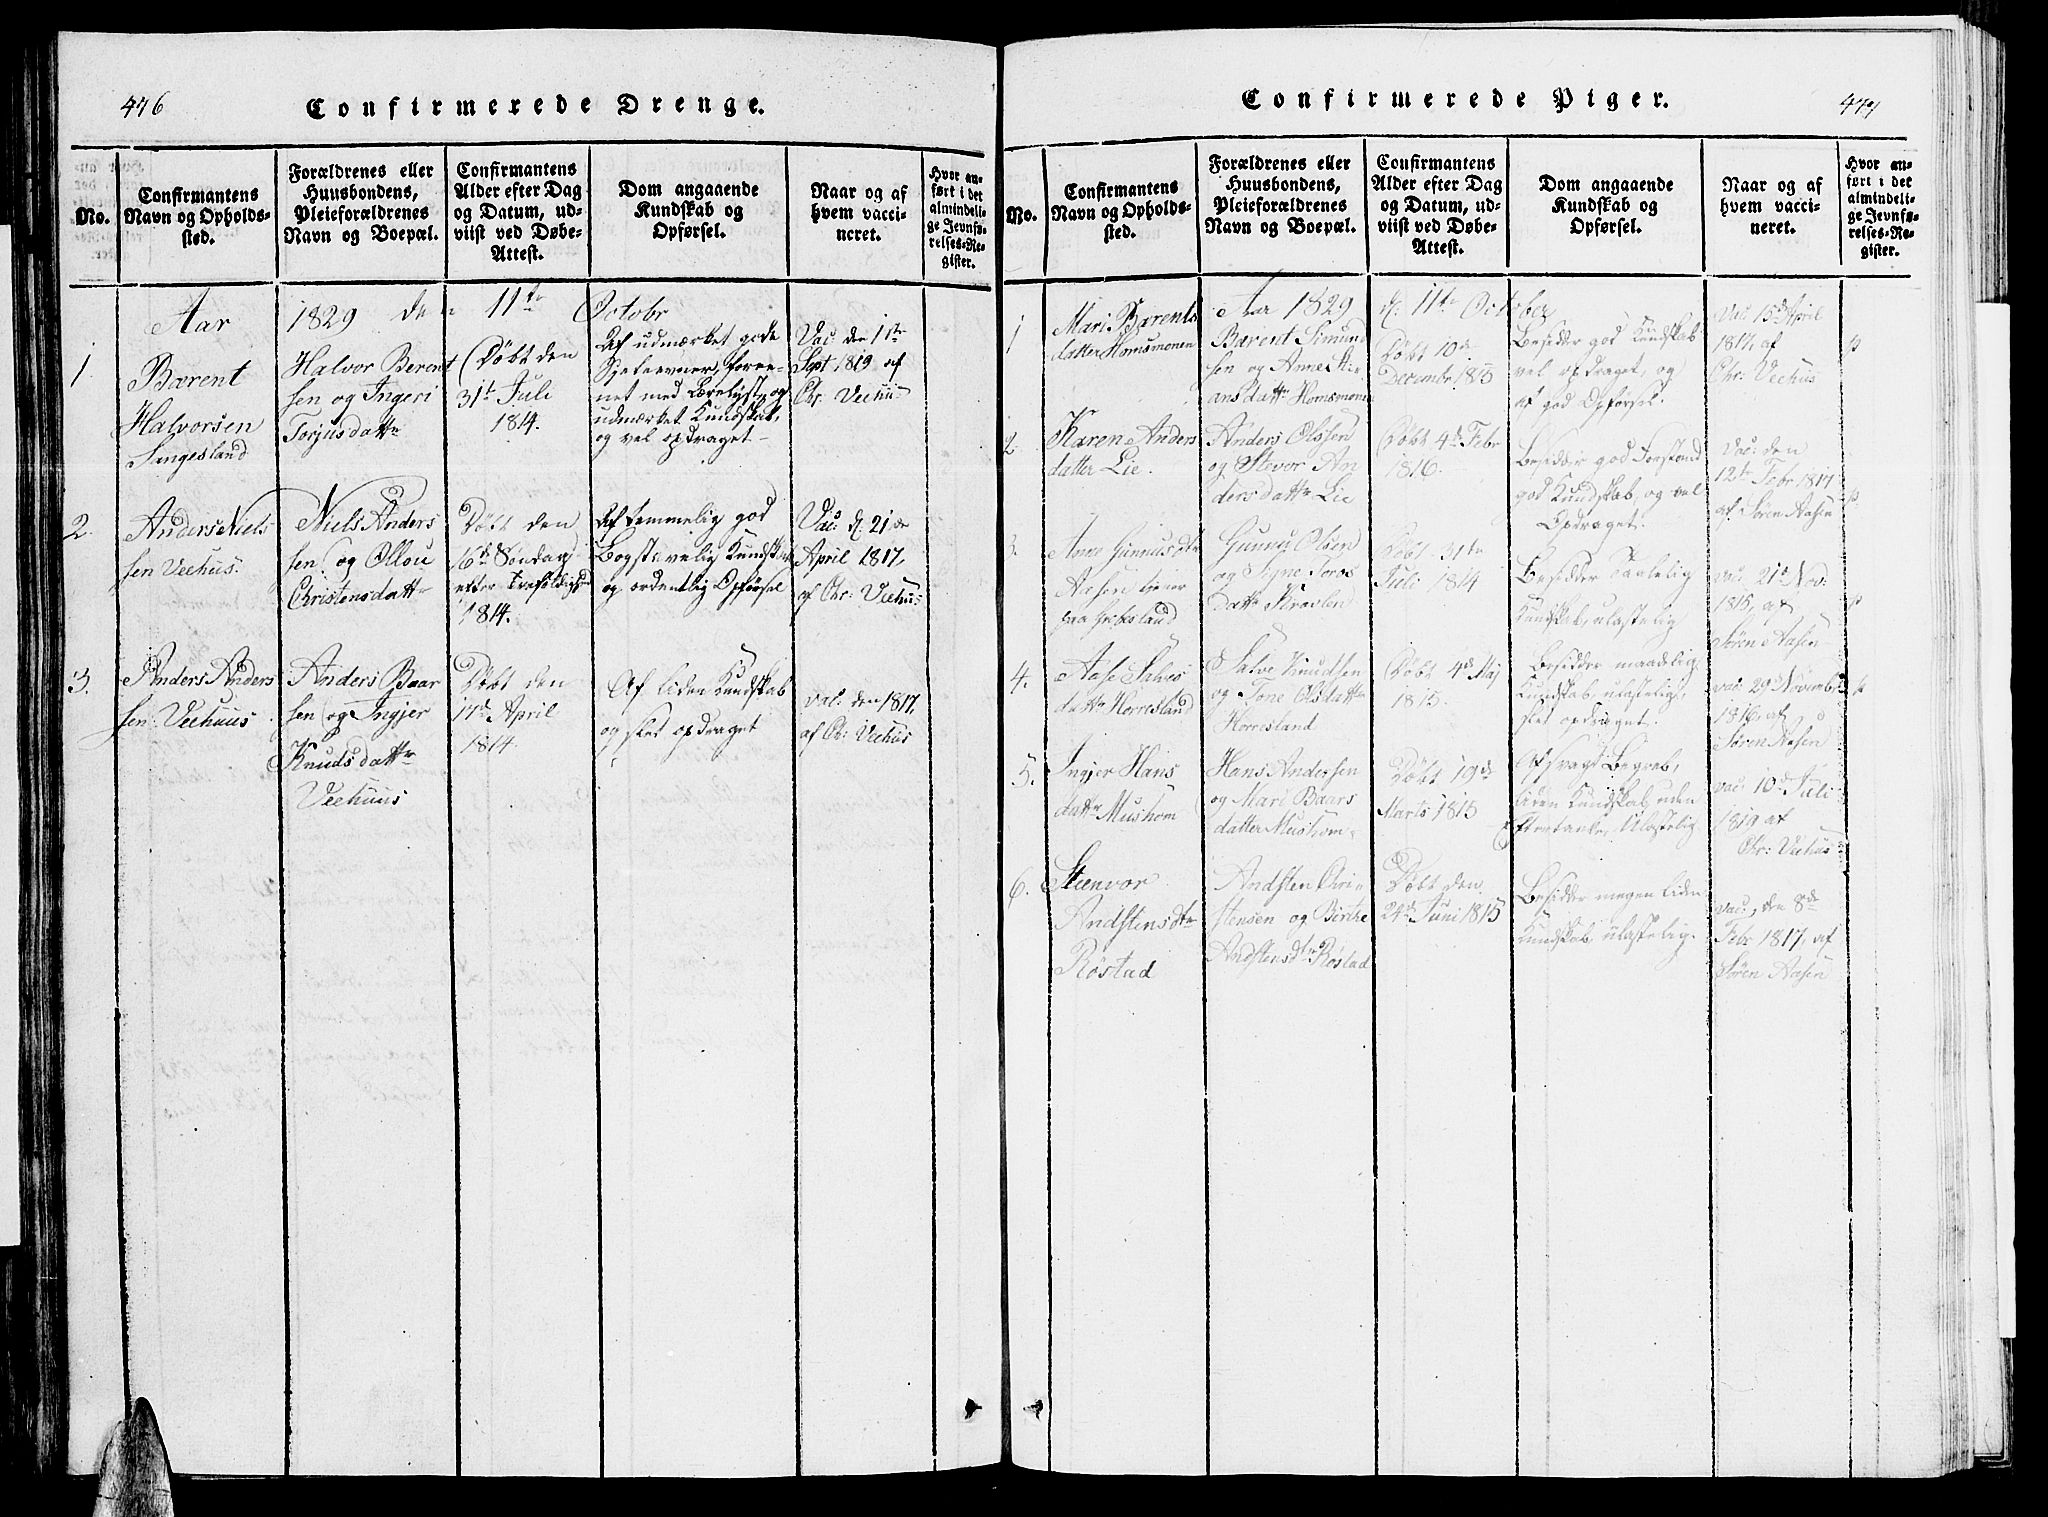 476
Confirmerede Drenge.
No.
Confirmantens
Navn og Opholds-
sted.
Forældrenes eller
Huusbondens,
Pleieforældrenes
Navn og Boepæl.
Confirmantens
Alder efter Dag
og Datum, ud-
viist ved Døbe-
Attest.
Dom angaaende
Kundskab og
Opførsel.
Naar og af
hvem vacci-
neret.
Hvor an-
ført i det
almindeli-
ge Jevnfø-
relses-Re-
gister.
Aar 1829 den 11te Octobr
1.
Bærent
Halvorsen
Sangesland
Halvor Berent
sen og Ingeri
Torjusdattr
Døbt den
31te Juli
1814.
Af udmærket gode
Sjeleevner, foree-
net med Lærelyst, og
udmærket Kundskab,
og vel opdraget
Vac: den 1ste
Sept 1819 af
Chr: Veehuus
2.
Anders Niels
sen Veehus
Niels Anders
sen og Ollou
Christensdattr
Døbt den
16de Søndag
efter Trefoldighed
1814.
Af temmelig god
Bogstavelig Kundskab
og ordentlig Opførsel
Vac: d: 21de
April 1817,
af Chr: Veehuus
3.
Anders Anders
sen Veehuus
Anders Baar
sen og Ingjer
Knudsdattr
Veehuus
Døbt den
17de April
1814.
Af liden Kundskab
og slet opdraget
vac: den 1817
af Chr: Veehus
Confirmerede Piger.
477
No.
Confirmantens
Navn og Opholds-
sted.
Forældrenes eller
Huusbondens,
Pleieforældrenes
Navn og Boepæl.
Confirmantens
Alder efter Dag
og Datum, ud-
viist ved Døbe-
Attest.
Dom angaaende
Kundskab og
Opførsel.
Naar og af
hvem vacci-
neret.
Hvor an-
ført i det
almindeli-
ge Jevnfø-
relses-Re-
gister.
Aar 1829 d: 11te October
1
Mari Bærents
datter Homsmonen
Bærent Simund
sen og Anne
ansdattr Homsmonen
Døbt 10de
Decembr 1815
Besidder god Kundskab
vel opdraget, og
af god Opførsel.
Vac: 15de April
1817, af
Chr: Veehus
2.
Karen Anders
datter Lie.
Anders Olssen
og Stevor An
dersdattr Lie
Døbt 4de Febr
1816.
Besidder god Forstand
god Kundskab, og vel
Opdraget.
Vac: den
12te Febr 1817
af Søren Aasen
3.
Anne Gunnusdtr
Aasen tjener
paa Greibesland
Gunnu Olsen
og Signe Tores
Dattr
Døbt 31te
Juli 1814
Besidder Taalelig
Kundskab, ulastelig
vac: 21de Nov:
1815, af
Søren Aasen
4.
Aase Salves
dattr Horresland
Salve Knudsen
og Tone Olsdattr
Horresland
Døbt 4de Maj
1815.
Besidder maadelig
Kundskab ulastelig,
slet opdraget.
vac: 29 Novembr
1816, af
Søren Aasen
5.
Ingjer Hans
dattr Mushom
Hans Anderssen
og Mari Baars
datter Mushom
Døbt 19de
Marts 1815
Af svagt Begreb,
liden Kundskab uden
Eftertanke, Ulastelig
vac: 10de Juli
1819 af
Chr: Veehus
6.
Steenvor
Andstensdtr
Røstad
Andsten Chri-
stensen og Birthe
Andstensdtr Røstad
Døbt den
24de Juni 1815
Besidder megen liden
Kundskab, ulastelig.
vac:, den 8de
Febr 1817, af
Søren Aasen